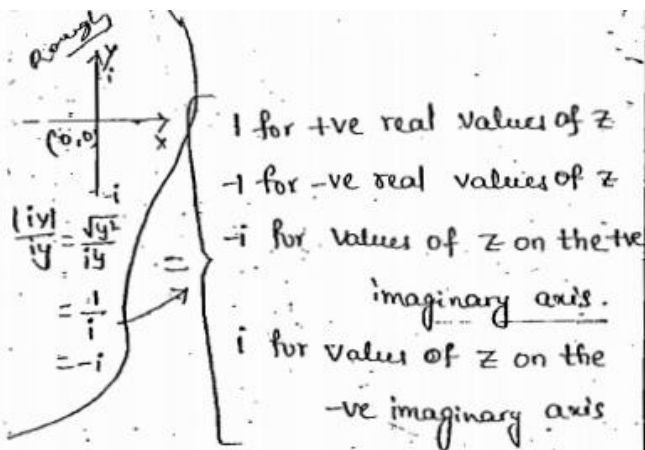 Rough
y
i
(0,0)
x
-i
|iy|/iy = √y²/iy
= 1/i
= -i
=
1 for +ve real values of z
-1 for -ve real values of z
-i for values of z on the +ve
imaginary axis.
i for values of z on the
-ve imaginary axis